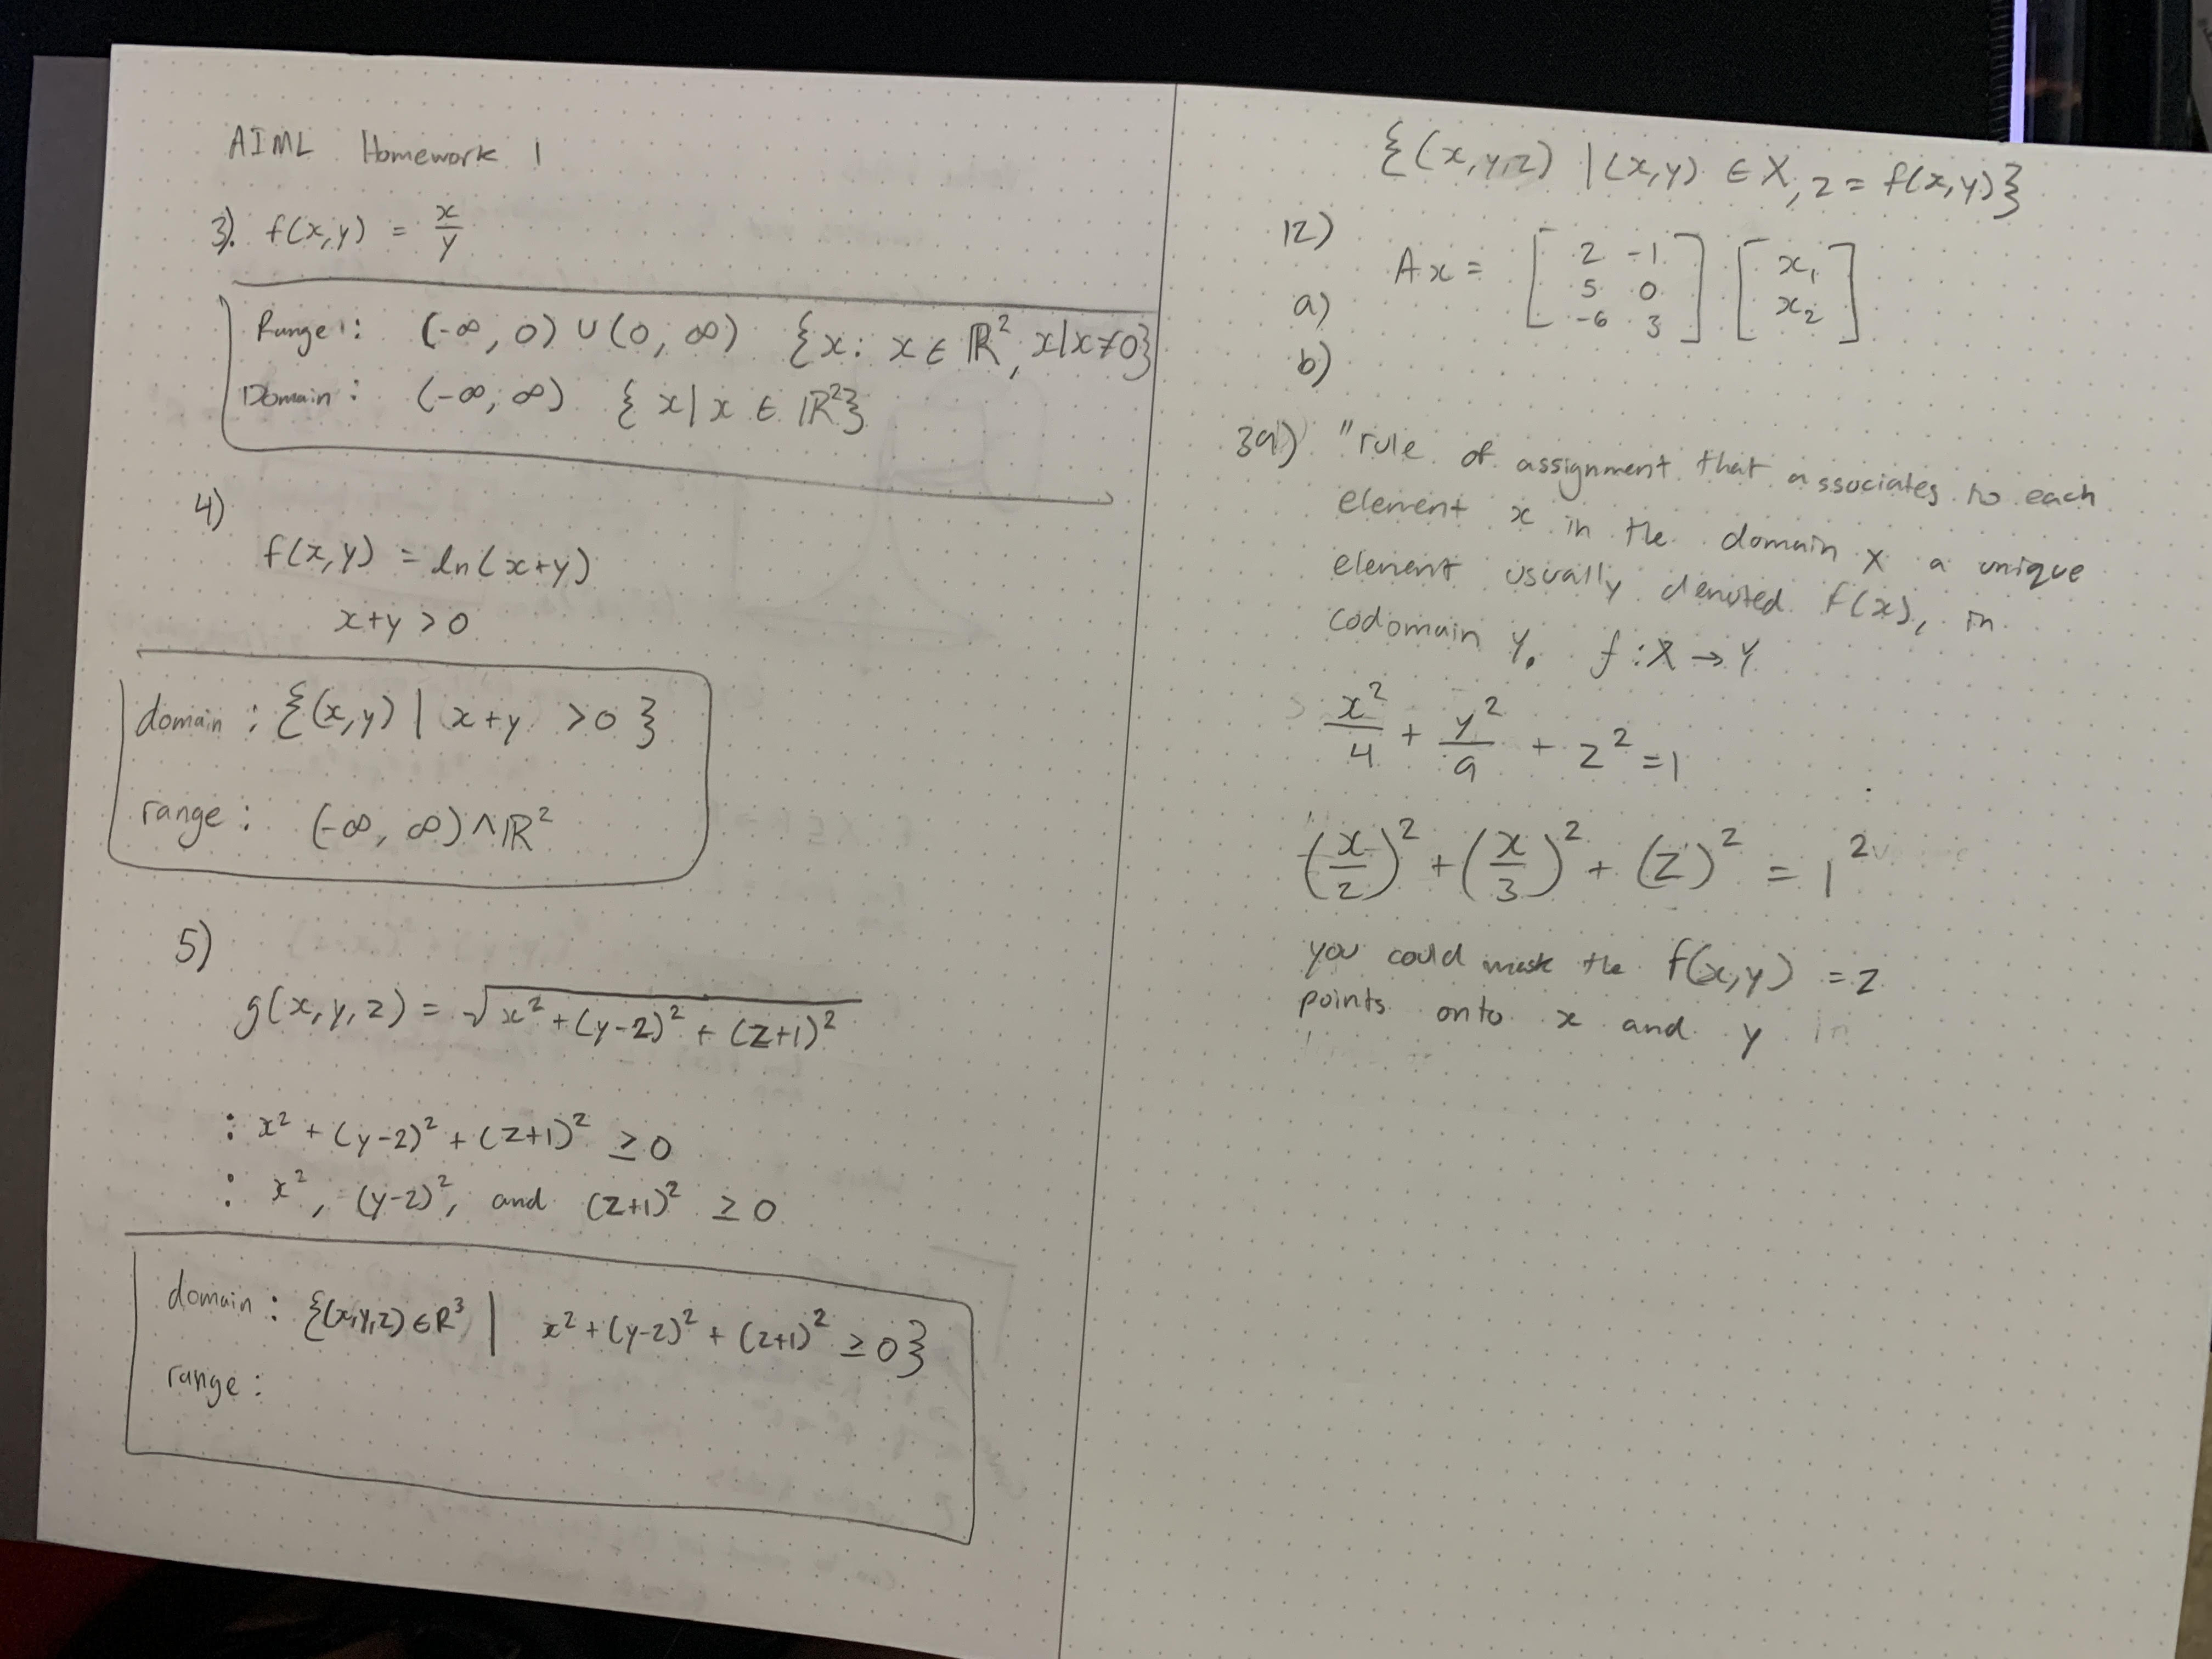 AIML Homework 1
3). f(x,y) = x/y
Range: (-∞, 0) ∪ (0, ∞) {x: x ∈ ℝ², x|x≠0}
Domain: (-∞, ∞) {x | x ∈ ℝ²}
4)
f(x,y) = ln(x+y)
x+y > 0
domain: {(x,y) | x+y > 0}
range: (-∞, ∞) ∧ ℝ²
5)
g(x,y,z) = √(x² + (y-2)² + (z+1)²)
: x² + (y-2)² + (z+1)² ≥ 0
: x², (y-2)², and (z+1)² ≥ 0
domain: {(x,y,z) ∈ R³ | x² + (y-2)² + (z+1)² ≥ 0}
range:
{(x,y,z) | (x,y) ∈ X, z = f(x,y)}
12)
Ax = [2 -1; 5 0; -6 3] [x₁; x₂]
a)
b)
39) "rule of assignment that associates to each
element x in the domain X a unique
element usually denoted f(x), in
codomain Y. f: X → Y
x²/4 + y²/9 + z² = 1
(x/2)² + (x/3)² + (z)² = 1²
you could the f(x,y) = z
points onto x and y in